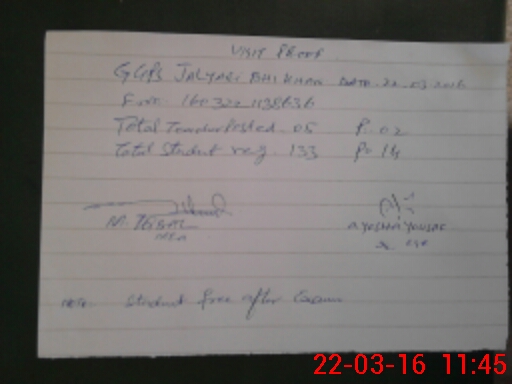 VISIT PROOF
GGPS JALYARI BHIKHAN DATE. 22-03-2016
160322
Total Teacher Posted. 05 P. 02
Total Student reg. 133 P. 14
M. IQBAL
AYESHA YOUSAF
NOTE. Student free after Exam
22-03-16 11:45